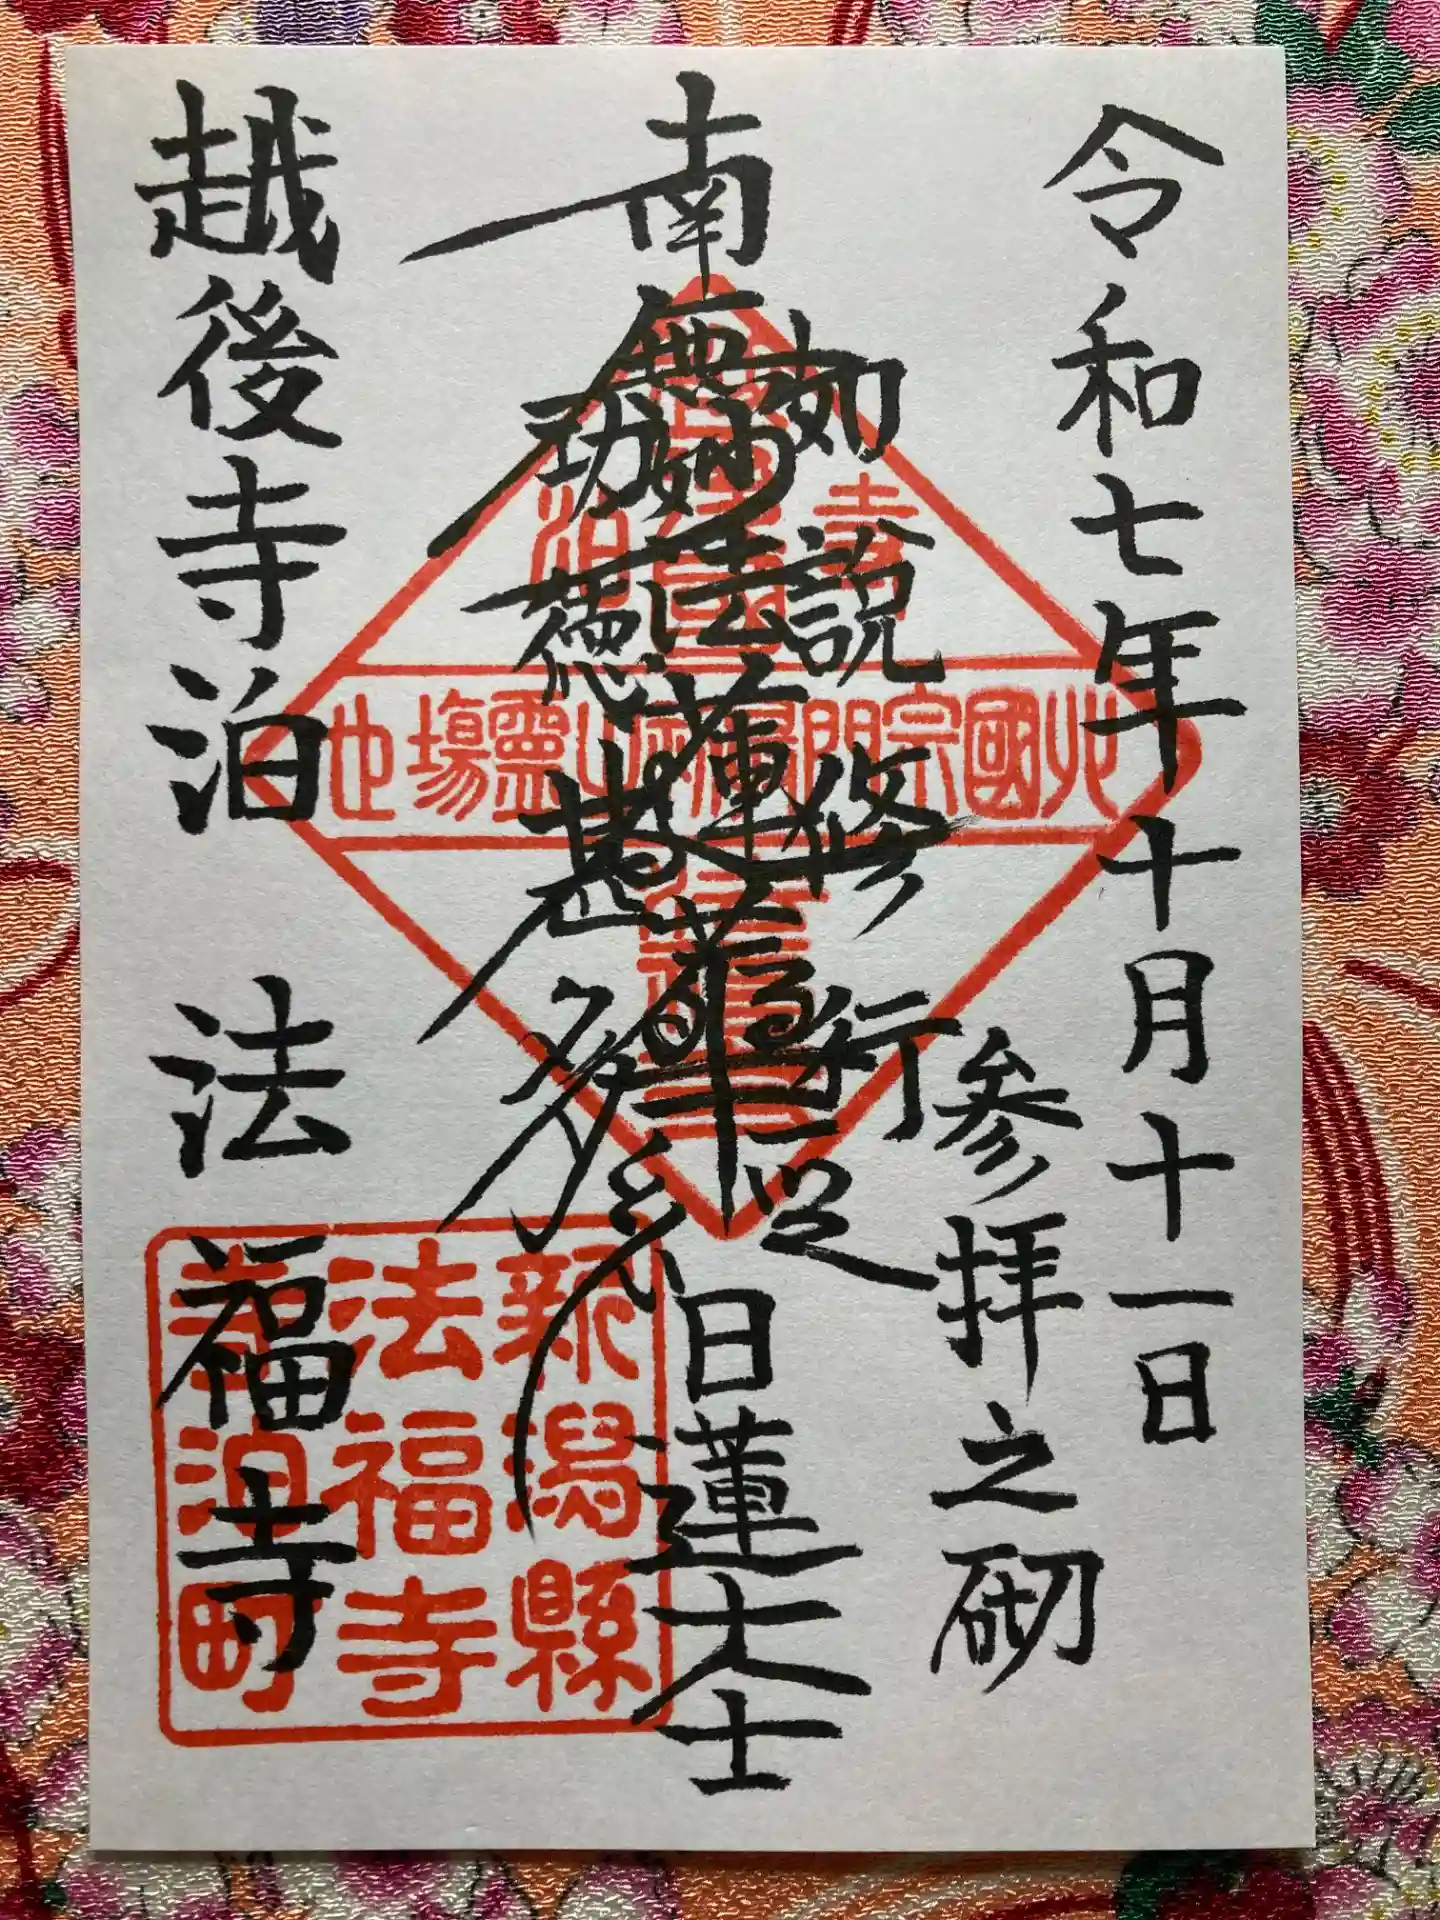 令和七年十月十一日
参拝之砌
如説修行
南無妙法蓮華経
日蓮大士
功徳甚多
越後寺泊 法福寺
北國宗門
山靈場地
寺
泊
新潟縣
法福寺
寺泊町